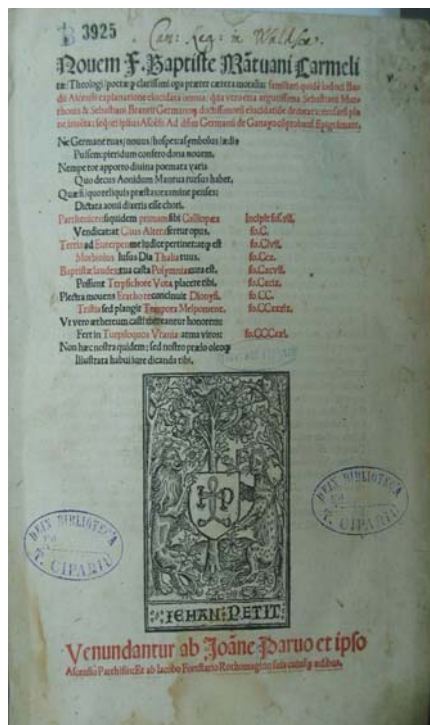 B 3925
Can: Reg: in
Nouem F. Baptiste Mãtuani Carmeli
tæ: Theologi/ poetæqȝ clarissimi opa præter cætera moralia: familiari quidẽ Iodoci Ba
dii Ascensii explanatione elucidata omnia: qdã vero etiã Sebastiani Mur
rhonis & Sebastiani Brantii Germanoȝ doctissimoȝ elucidatiõe decorata
Ascẽsii Ad Germani de Ganayo Epigrammate.
Ne Germane tuas/ nouus/ hospes/ asymbolus/ ædis
Pulsem: pieridum confero dona nouem.
Nempe tot apporto diuina poemata vatis
Quo decus Aonidum Mantua rursus habet.
Quæ si/ quo reliquis præstas: examine penses:
Dictata aonii dixeris esse chori.
Parthenice: siquidem primam sibi Calliopæa Incipit fo.
Vendicat: at Clius Altera fertur opus. fo.C.
Tertia ad Euterpen me iudice pertinet: at qȝ est fo.Clvii.
Morbosus lusus Dia Thalia tuus. fo.Ccx.
Baptistæ laudem: tua casta Polymnia cura est. fo.
Possunt Terpsichore Vota placere tibi. fo.
Plectra mouens Erato reconcinuit Dionysi. fo.CC.
Tristia sed plangit Tempora Melpomene. fo.
Vt vero æthereum casti mereantur honorem:
Fert in Turpiloquos Vrania arma viros: fo.
Non hæc nostra quidem: sed nostro prælo oleoqȝ
Illustrata habui iure dicanda tibi.
I P
DEIN BIBLIOTECA
T. CIPARIU
DEIN BIBLIOTECA
T. CIPARIU
IEHAN PETIT
Venundantur ab Joãne Paruo et ipso
Ascensio Parrhisiis: Et ab Iacobo Forestario Rothomagi: in suis cuiusqȝ ædibus.